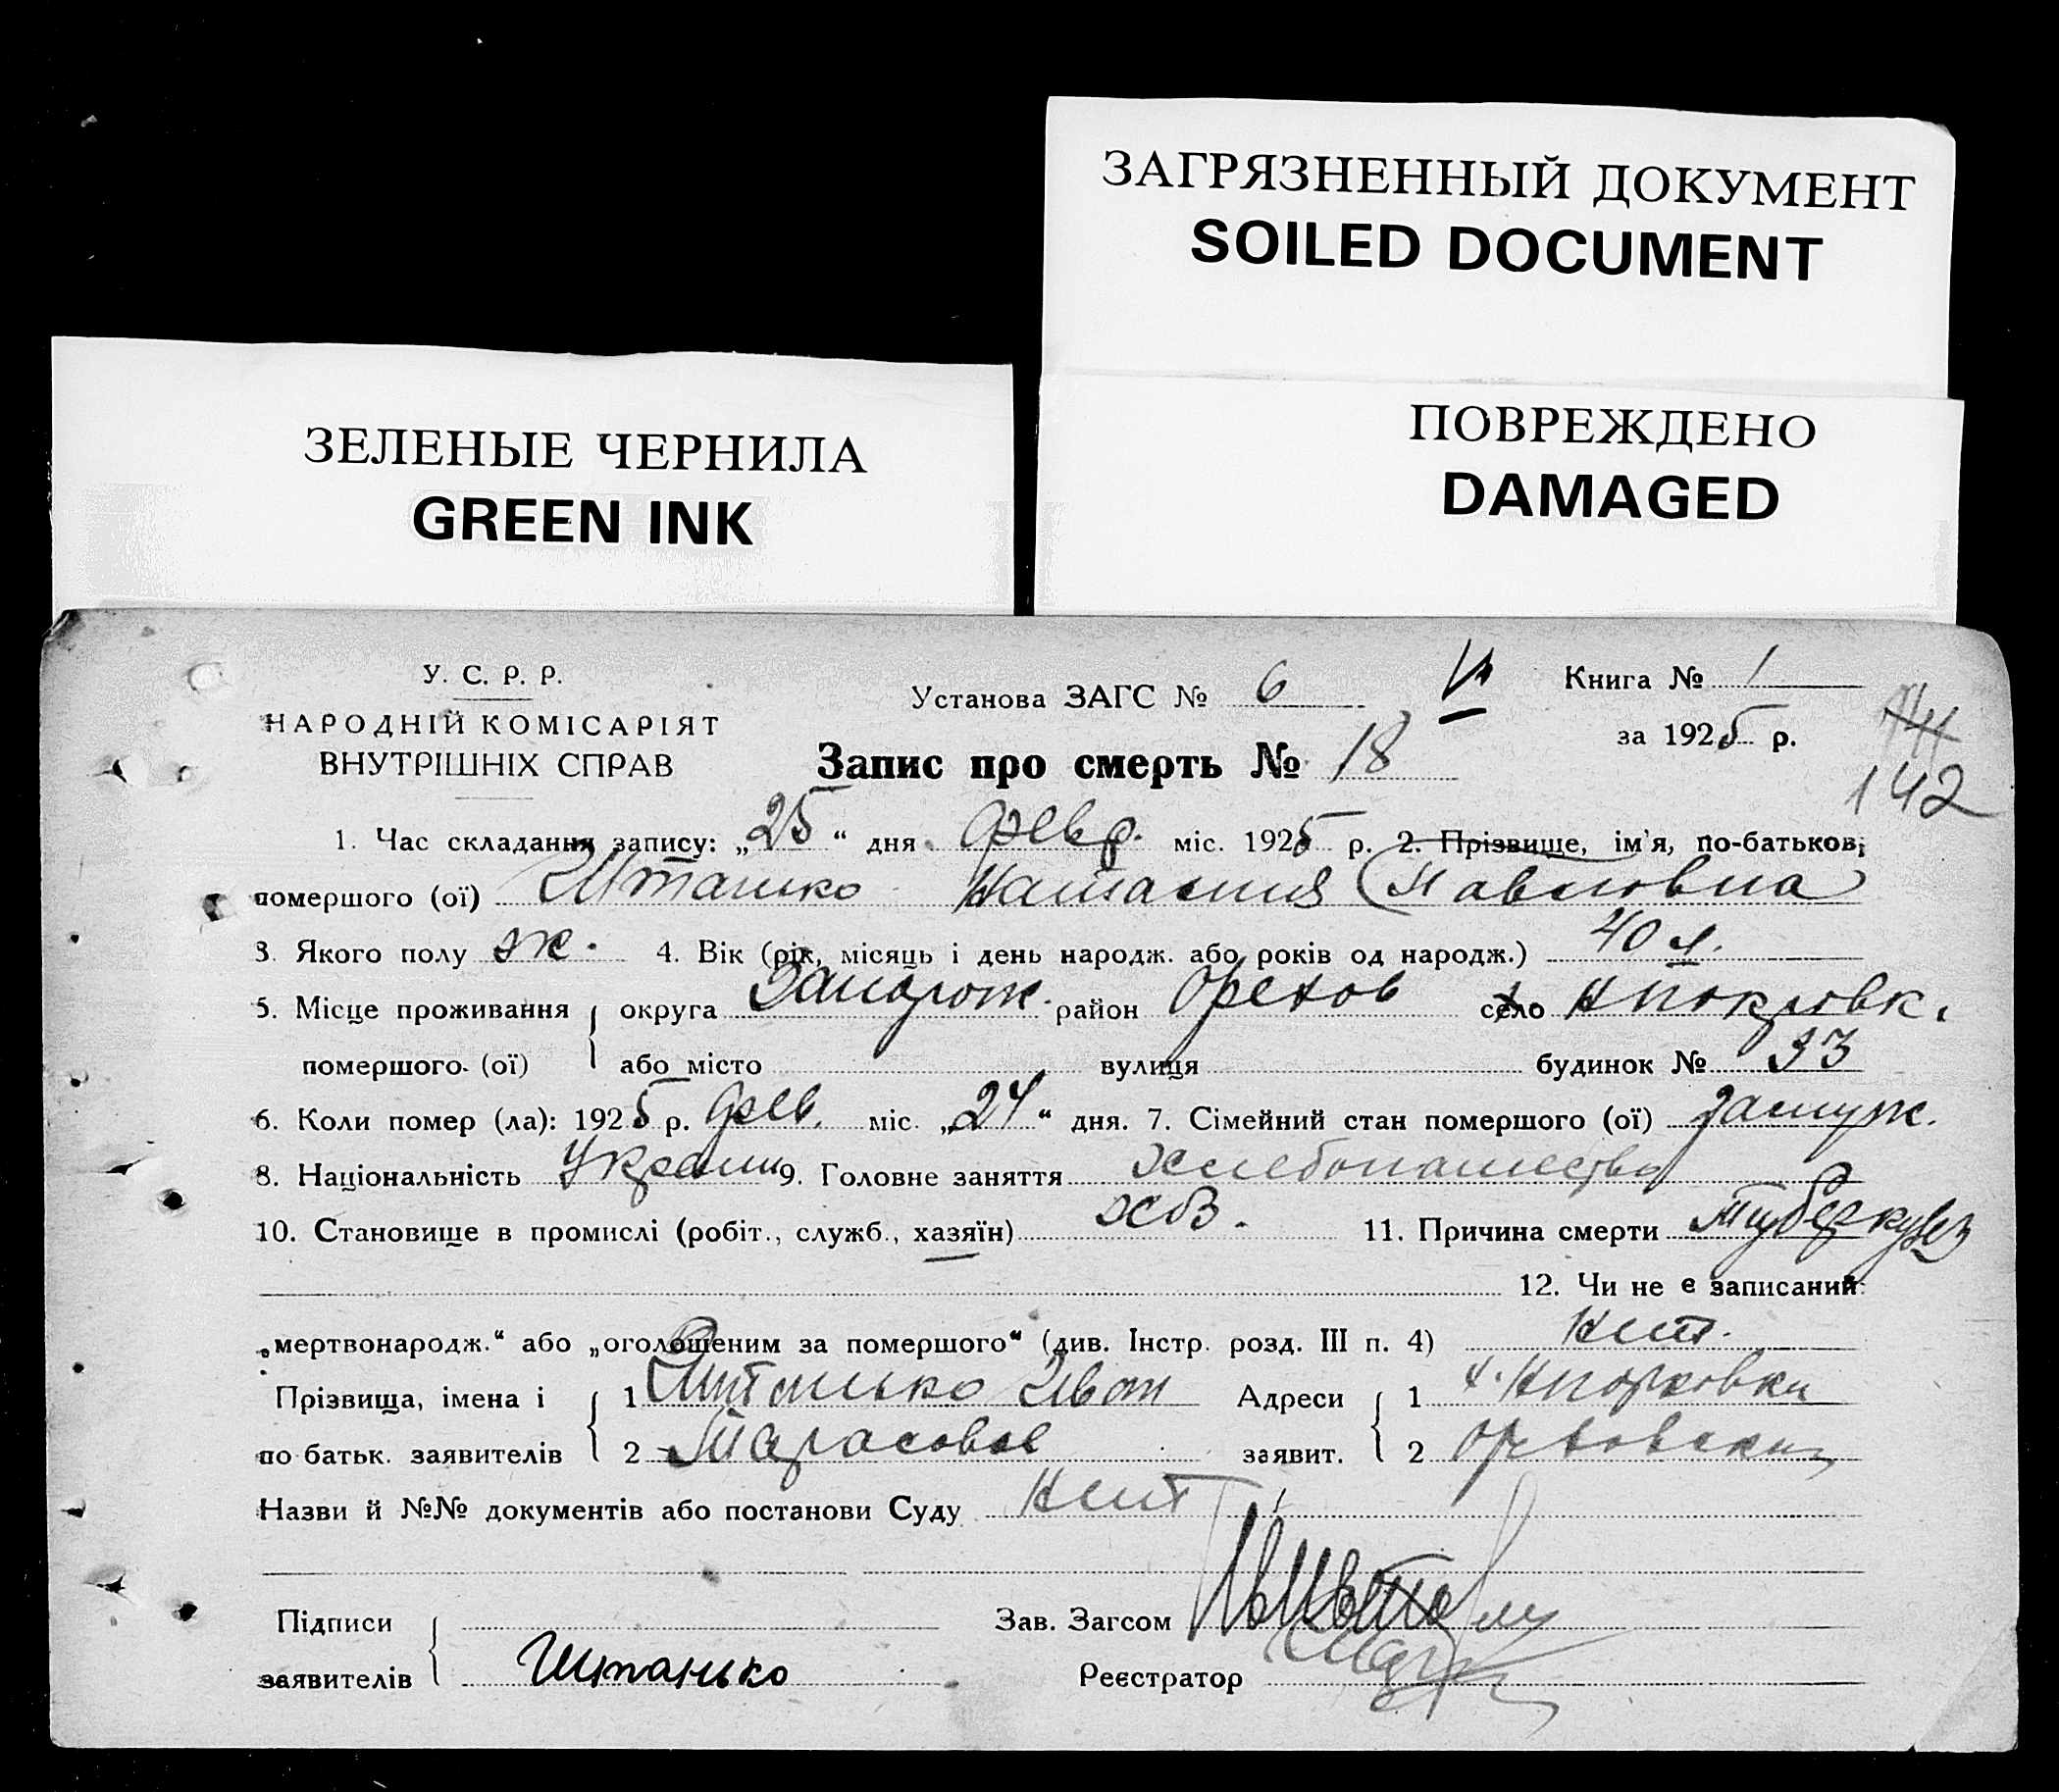 ЗАГРЯЗНЕННЫЙ ДОКУМЕНТ
SOILED DOCUMENT
ЗЕЛЕНЫЕ ЧЕРНИЛА
GREEN INK
ПОВРЕЖДЕНО
DAMAGED
У. С. Р. Р.
НАРОДНІЙ КОМІСАРІЯТ
ВНУТРІШНІХ СПРАВ
Установа ЗАГС № 6
Книга № 1
за 1925 р.
142
Запис про смерть № 18
1. Час складання запису: „25“ дня февр. міс. 1925 р. 2. Прізвище, ім'я, по-батькові
помершого (ої) Штанько Настасия (Павловна)
3. Якого полу ж. 4. Вік (рік, місяць і день народж. або років од народж.) 40 л.
5. Місце проживання округа Запорож. район Орехов село Н покровк.
помершого (ої) або місто вулиця будинок № 33
6. Коли помер (ла): 1925 р. фев. міс. „24“ дня. 7. Сімейний стан помершого (ої) замуж.
8. Національність Украин 9. Головне заняття хлебопашество
10. Становище в промислі (робіт., служб., хазяїн) 11. Причина смерти Туберкулез
12. Чи не є записаний:
„мертвонародж.“ або „оголошеним за помершого“ (див. Інстр. розд. III п. 4) Нет.
Прізвища, імена і 1 Штанько Иван Адреси 1
по батьк. заявителів 2 Тарасовов заявит. 2
Назви й №№ документів або постанови Суду Нет
Підписи Зав. Загсом
заявителів Штанько Реєстратор